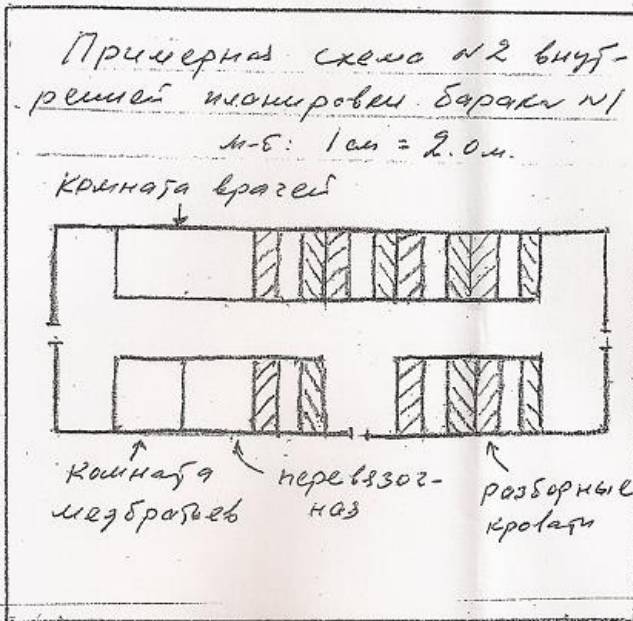 Примерная схема №2 внут-
ренней планировки барака №1
м-б: 1 см = 2.0 м.
комната врачей
комната
медбратьев
перевязоч-
ная
разборные
кровати